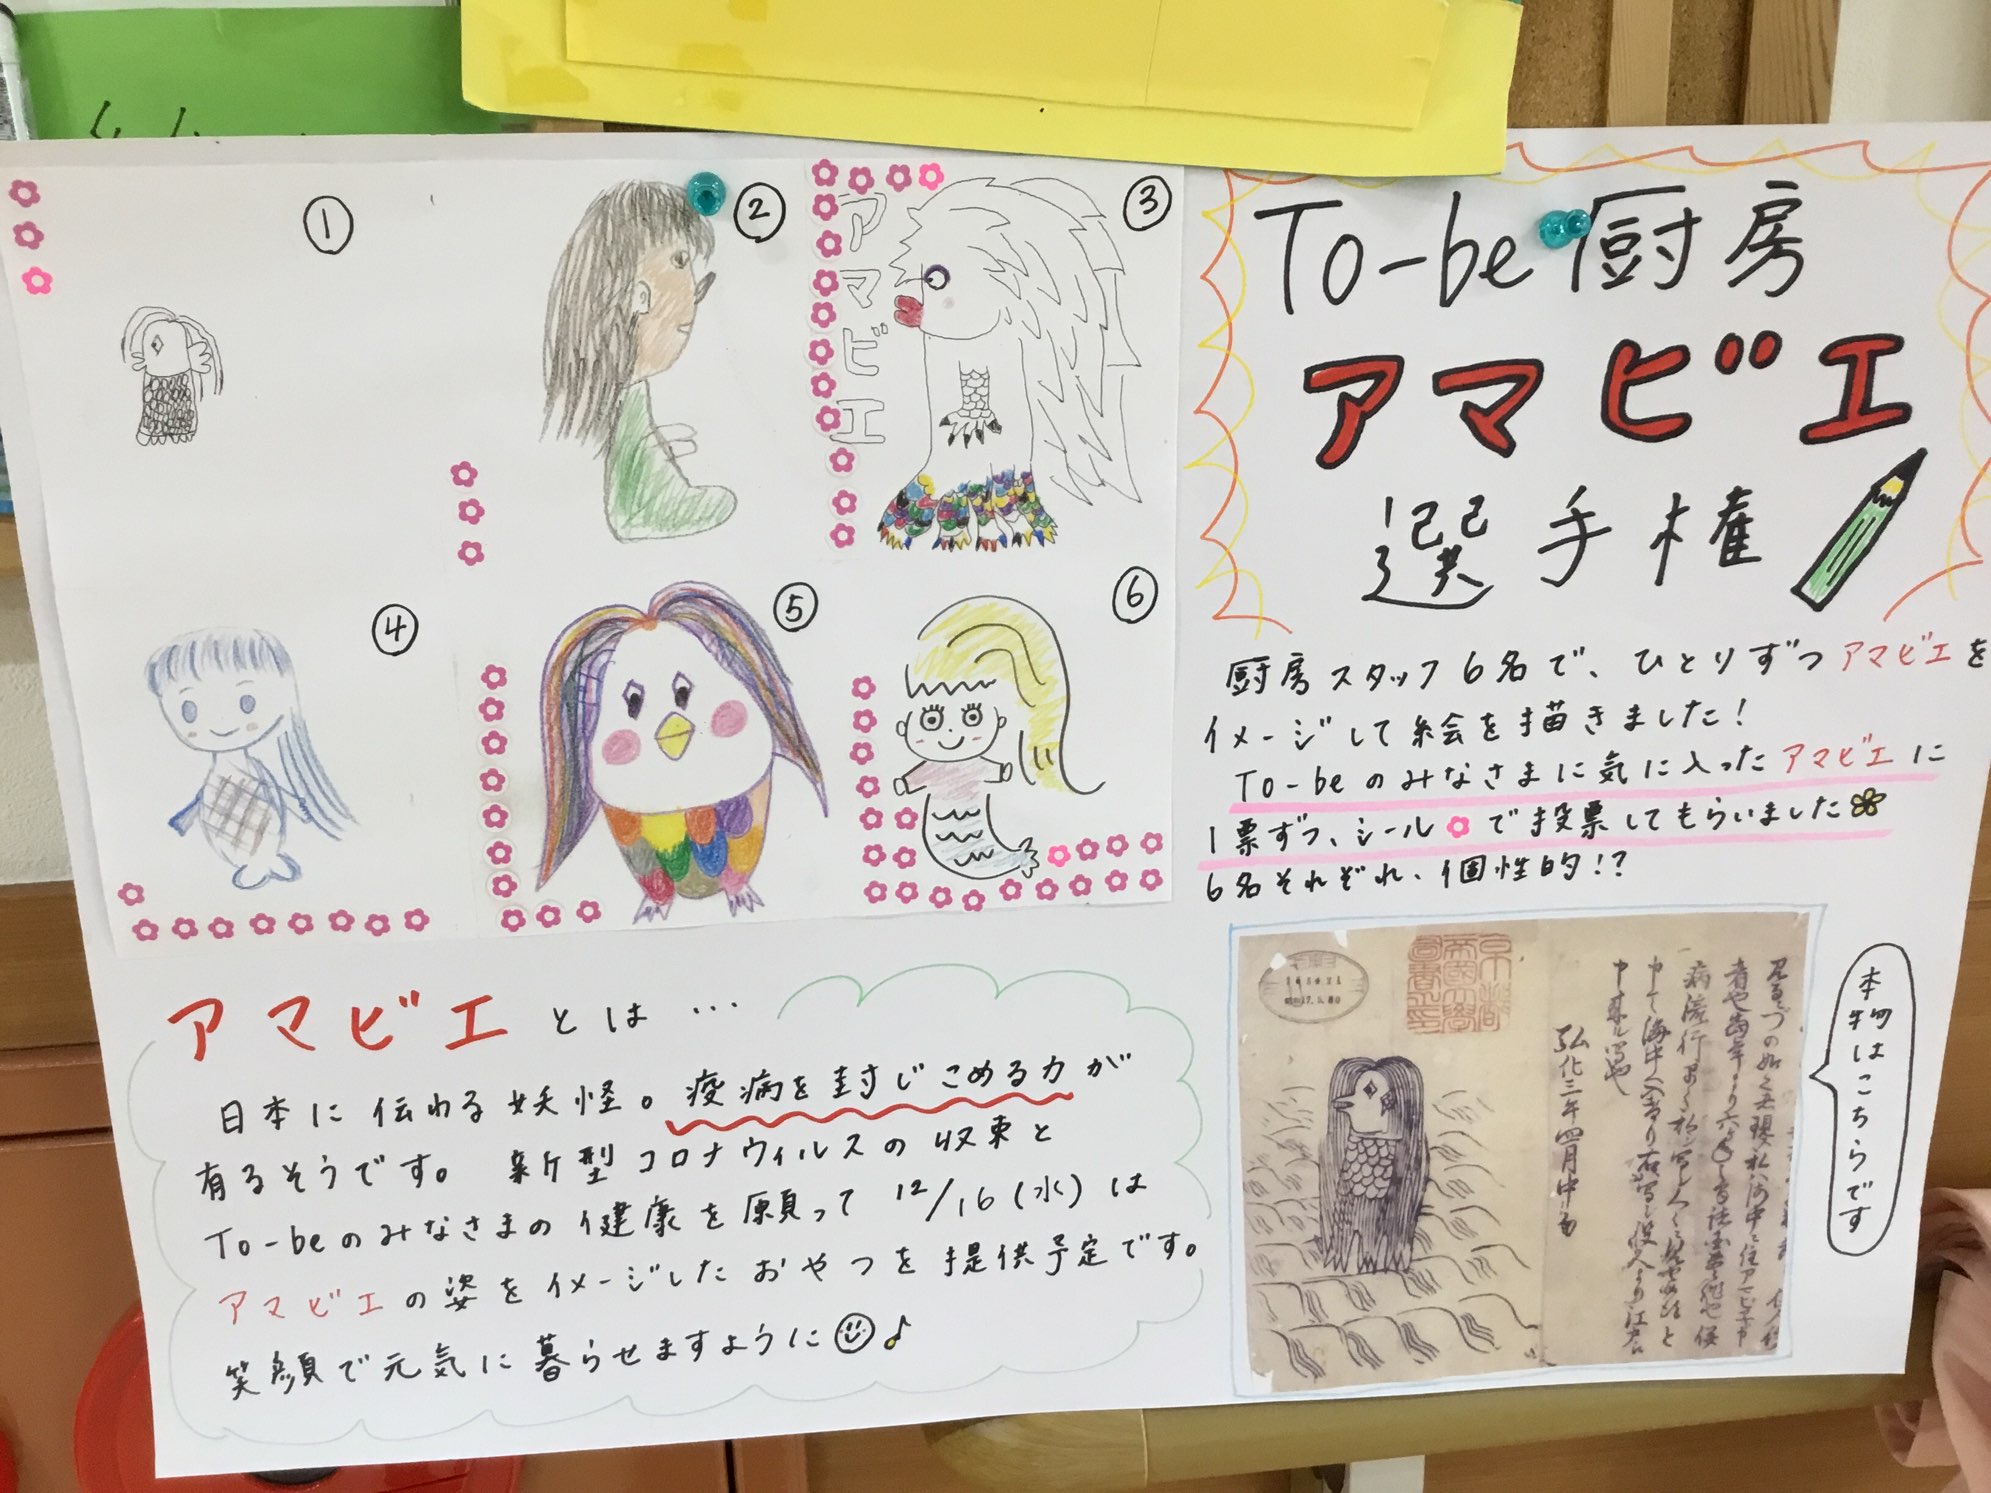 To-be 厨房
アマビエ
選手権
厨房スタッフ6名で、ひとりずつアマビエを
イメージして絵を描きました!
To-beのみなさまに気に入ったアマビエに
1票ずつ、シールで投票してもらいました
6名それぞれ、個性的!?
①
②
③
アマビエ
④
⑤
⑥
アマビエとは…
日本に伝わる妖怪。疫病を封じこめる力が
有るそうです。新型コロナウィルスの収束と
To-beのみなさまの健康を願って12/16(水)は
アマビエの姿をイメージしたおやつを提供予定です。
笑顔で元気に暮らせますように♪
本物はこちらです
弘化三年四月中旬